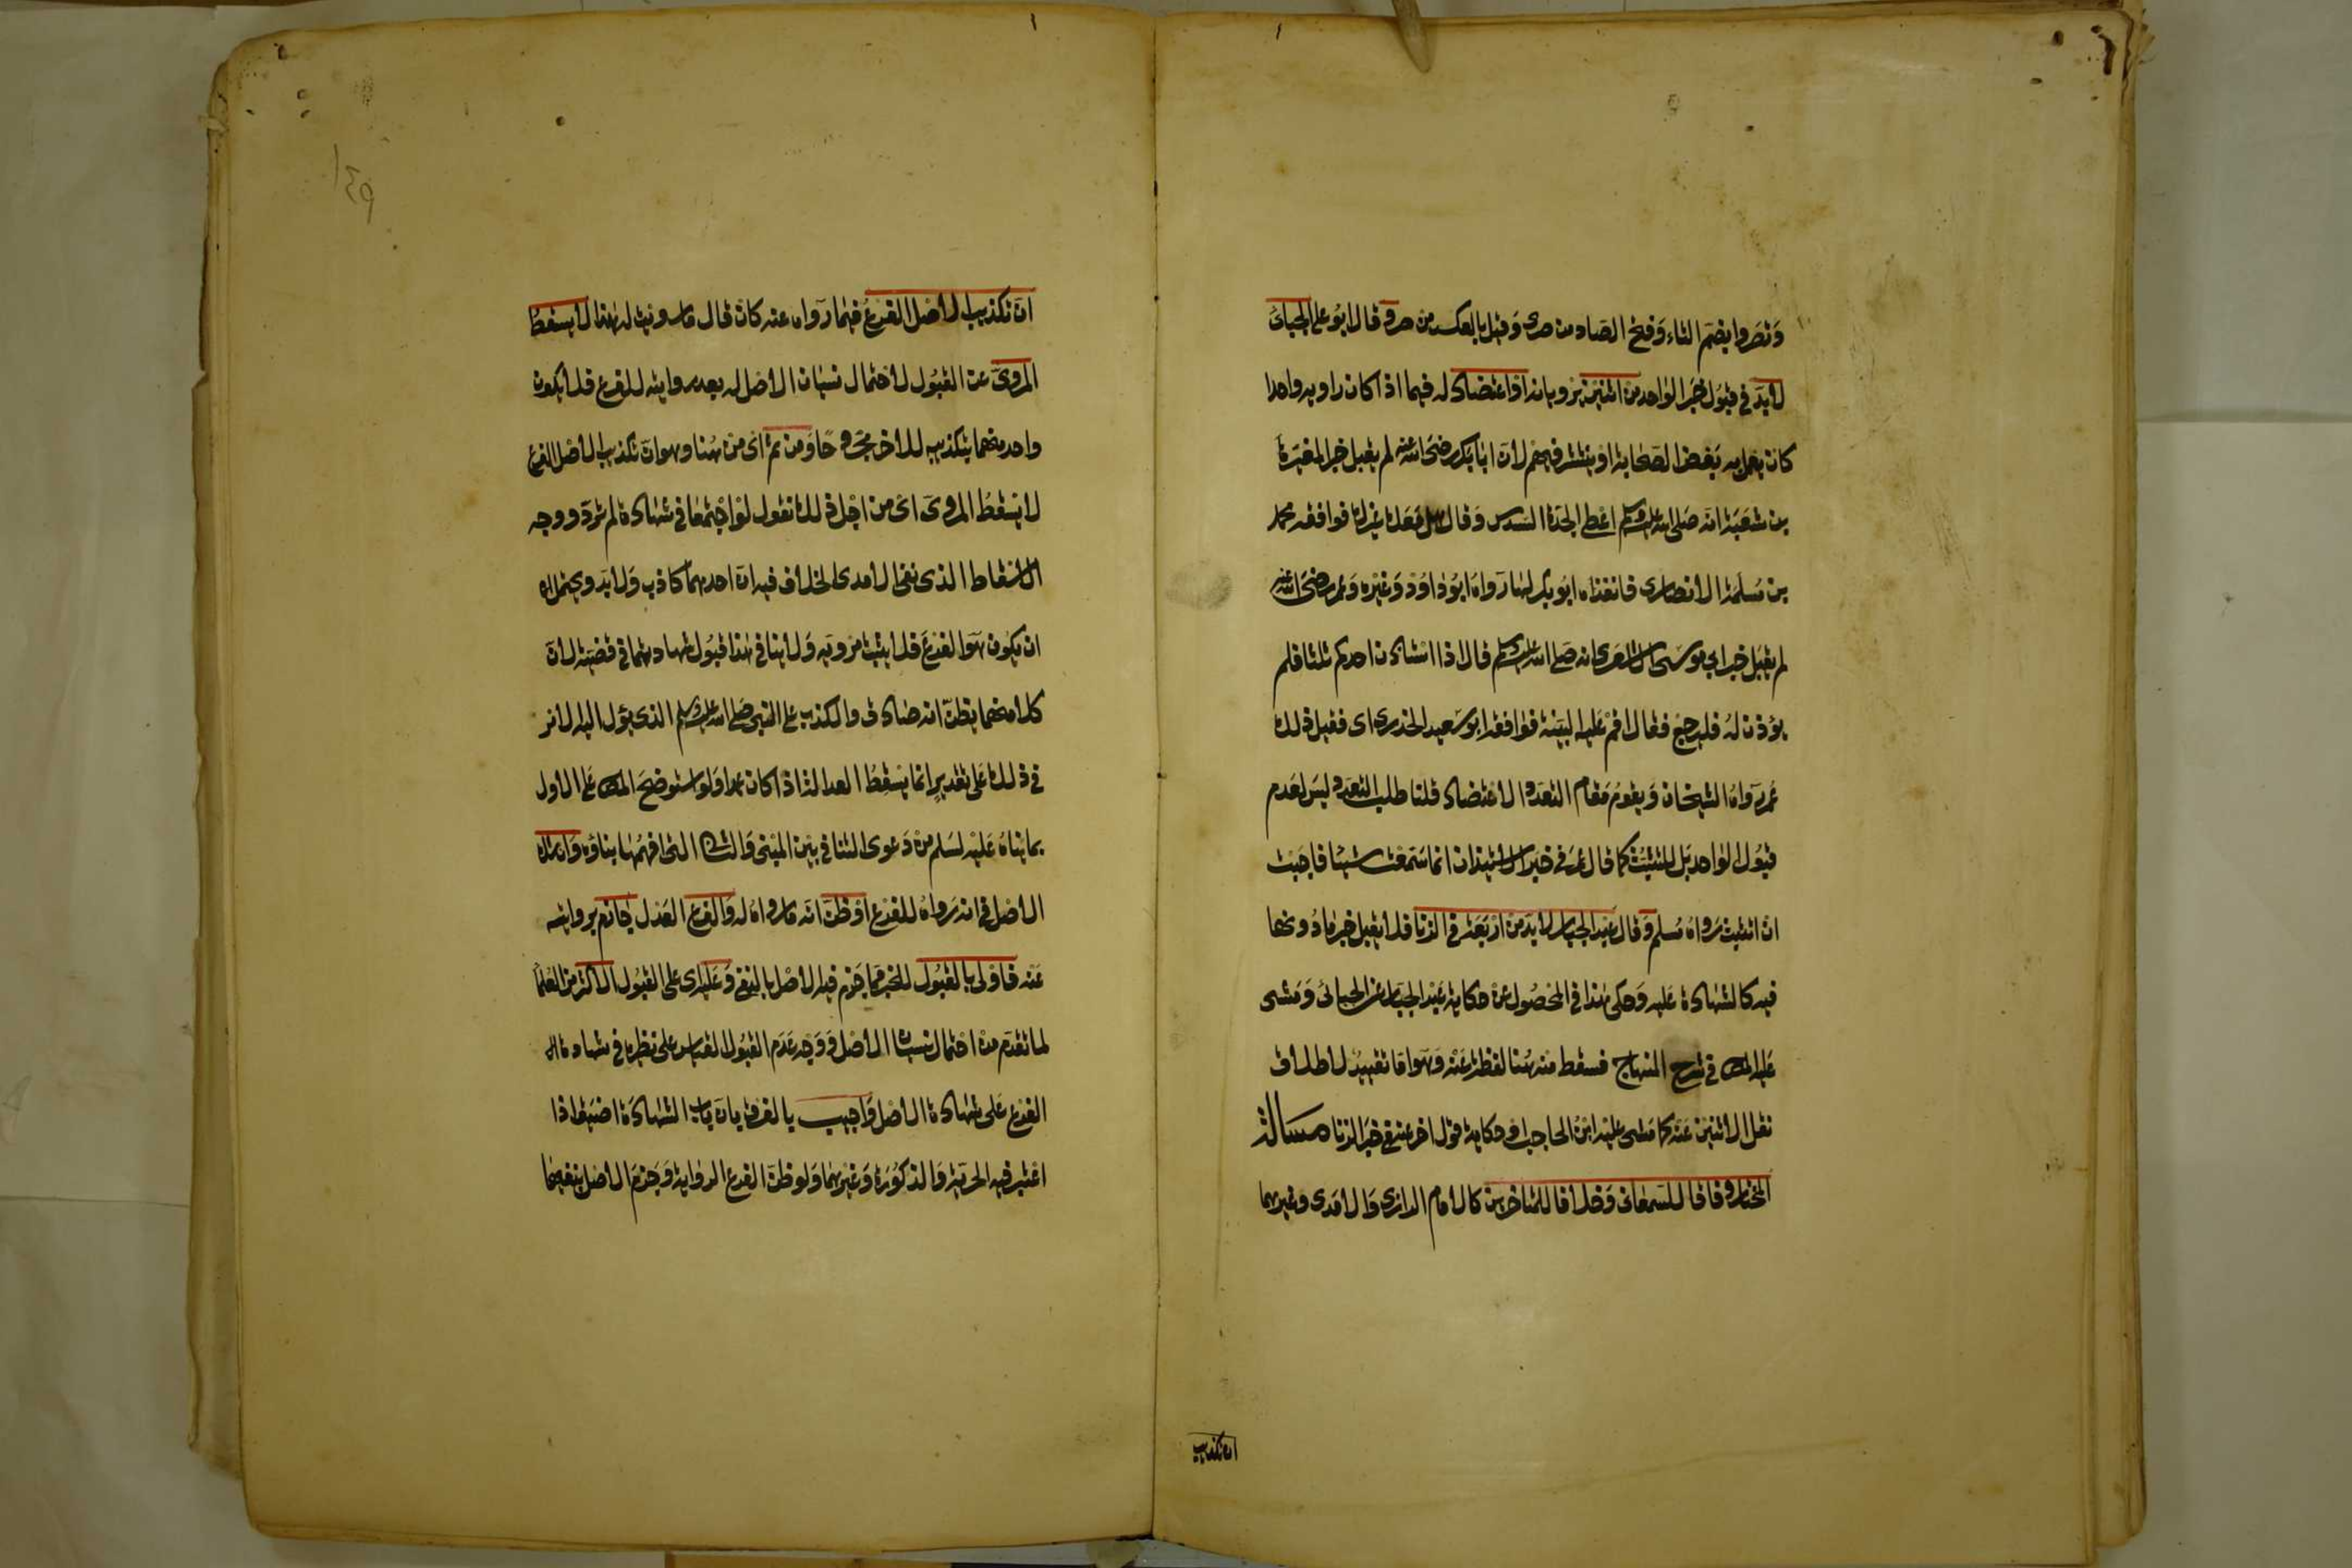 وتصروا بضم التاء وفتح الصاد من صرى وقيل بالعكس من صر وقال ابو علي الجبائي
لابد في قبول خبر الواحد من اثنين يرويانه او اعتضاد له فيما اذا كان راويه واحدا
كان يعمل به بعض الصحابة او ينتشر فيهم لان ابا بكر رضي الله عنه لم يقبل خبر المغيرة
بن شعبة انه صلى الله عليه وسلم اعطى الجدة السدس وقال هل معك غيرك فوافقه محمد
بن مسلمة الانصاري فانفذه ابو بكر لها رواه ابو داود وغيره وعمر رضي الله عنه
لم يقبل خبر ابي موسى الاشعري انه صلى الله عليه وسلم قال اذا استأذن احدكم ثلثا فلم
يؤذن له فليرجع فقال اقم عليه البينة فوافقه ابو سعيد الخدري اى فقبل ذلك
عمر رواه الشيخان ويقوم مقام التعدد الاعتضاد قلنا طلب التعدد ليس لعدم
قبول الواحد بل للتثبت كما قال عمر في خبر الاستيذان انما سمعت شيئا فاحببت
ان اتثبت رواه مسلم وقال عبد الجبار لابد من اربعة في الزنا فلا يقبل خبر ما دونها
فيه كالشهادة عليه وحكى هذا في المحصول عن حكاية عبد الجبار عن الجبائي ومشى
عليه المص في شرح المنهاج فسقط منه هنا لفظة عنه وهو اما تقييد لاطلاق
نقل الاثنين عنه كما مشى عليه ابن الحاجب او حكاية قول اخر عنه في خبر الزنا مسالة
المختار وفاقا للسمعاني وخلافا للمتاخرين كالامام الرازي والامدي وغيرهما
ان تكذيب
ان تكذيب الاصل الفرع فيما رواه عنه كان قال ما رويت له هذا لا يسقط
المروى عن القبول لاحتمال نسيان الاصل له بعد روايته للفرع فلا يكون
واحد منهما بتكذيب للاخر مجروحا ومن ثم اى من هنا وهو ان تكذيب الاصل الفرع
لا يسقط المروى اى من اجل ذلك نقول لو اجتمعا في شهادة لم ترد ووجه
الاسقاط الذى نفى الامدى الخلاف فيه ان احدهما كاذب ولابد ويحتمل
ان يكون هو الفرع فلا يثبت مرويه ولا ينافي هذا قبول شهادتهما في قضية لان
كلا منهما يظن انه صادق والكذب على النبي صلى الله عليه وسلم الذى يؤل اليه الامر
في ذلك على تقديرٍ انما يسقط العدالة اذا كان عمدا ولو استوضح المص على الاول
بما بناه عليه لسلم من دعوى التنافي بين المبنى والثاني التي افهمها بناؤه وان شك
الاصل في انه رواه للفرع او ظن انه ما رواه له والفرع العدل جازم بروايته
عنه فاولى بالقبول للخبر مما جزم فيه الاصل بالنفي وعليه اى على القبول الاكثر من العلما
لما تقدم من احتمال نسيان الاصل ووجه عدم القبول القياس على نظيره في شهادة
الفرع على شهادة الاصل واجيب بالفرق بان باب الشهادة اضيق اذا
اعتبر فيه الحرية والذكورة وغيرهما ولو ظن الفرع الرواية وجزم الاصل بنفيها
١٤٩